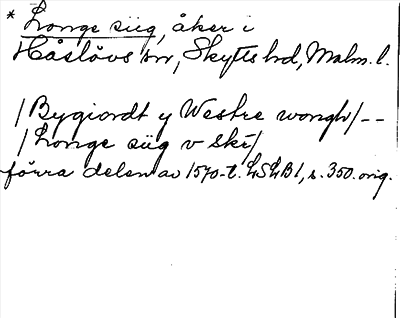 * Longe siig, åker i
Håslövs sn, Skytts hd, Malm. l.
/Bygiordt y Westre wongh/--
/Longe siig v ski/
förra delen av 1570-t. LSLB1, s. 350. orig.